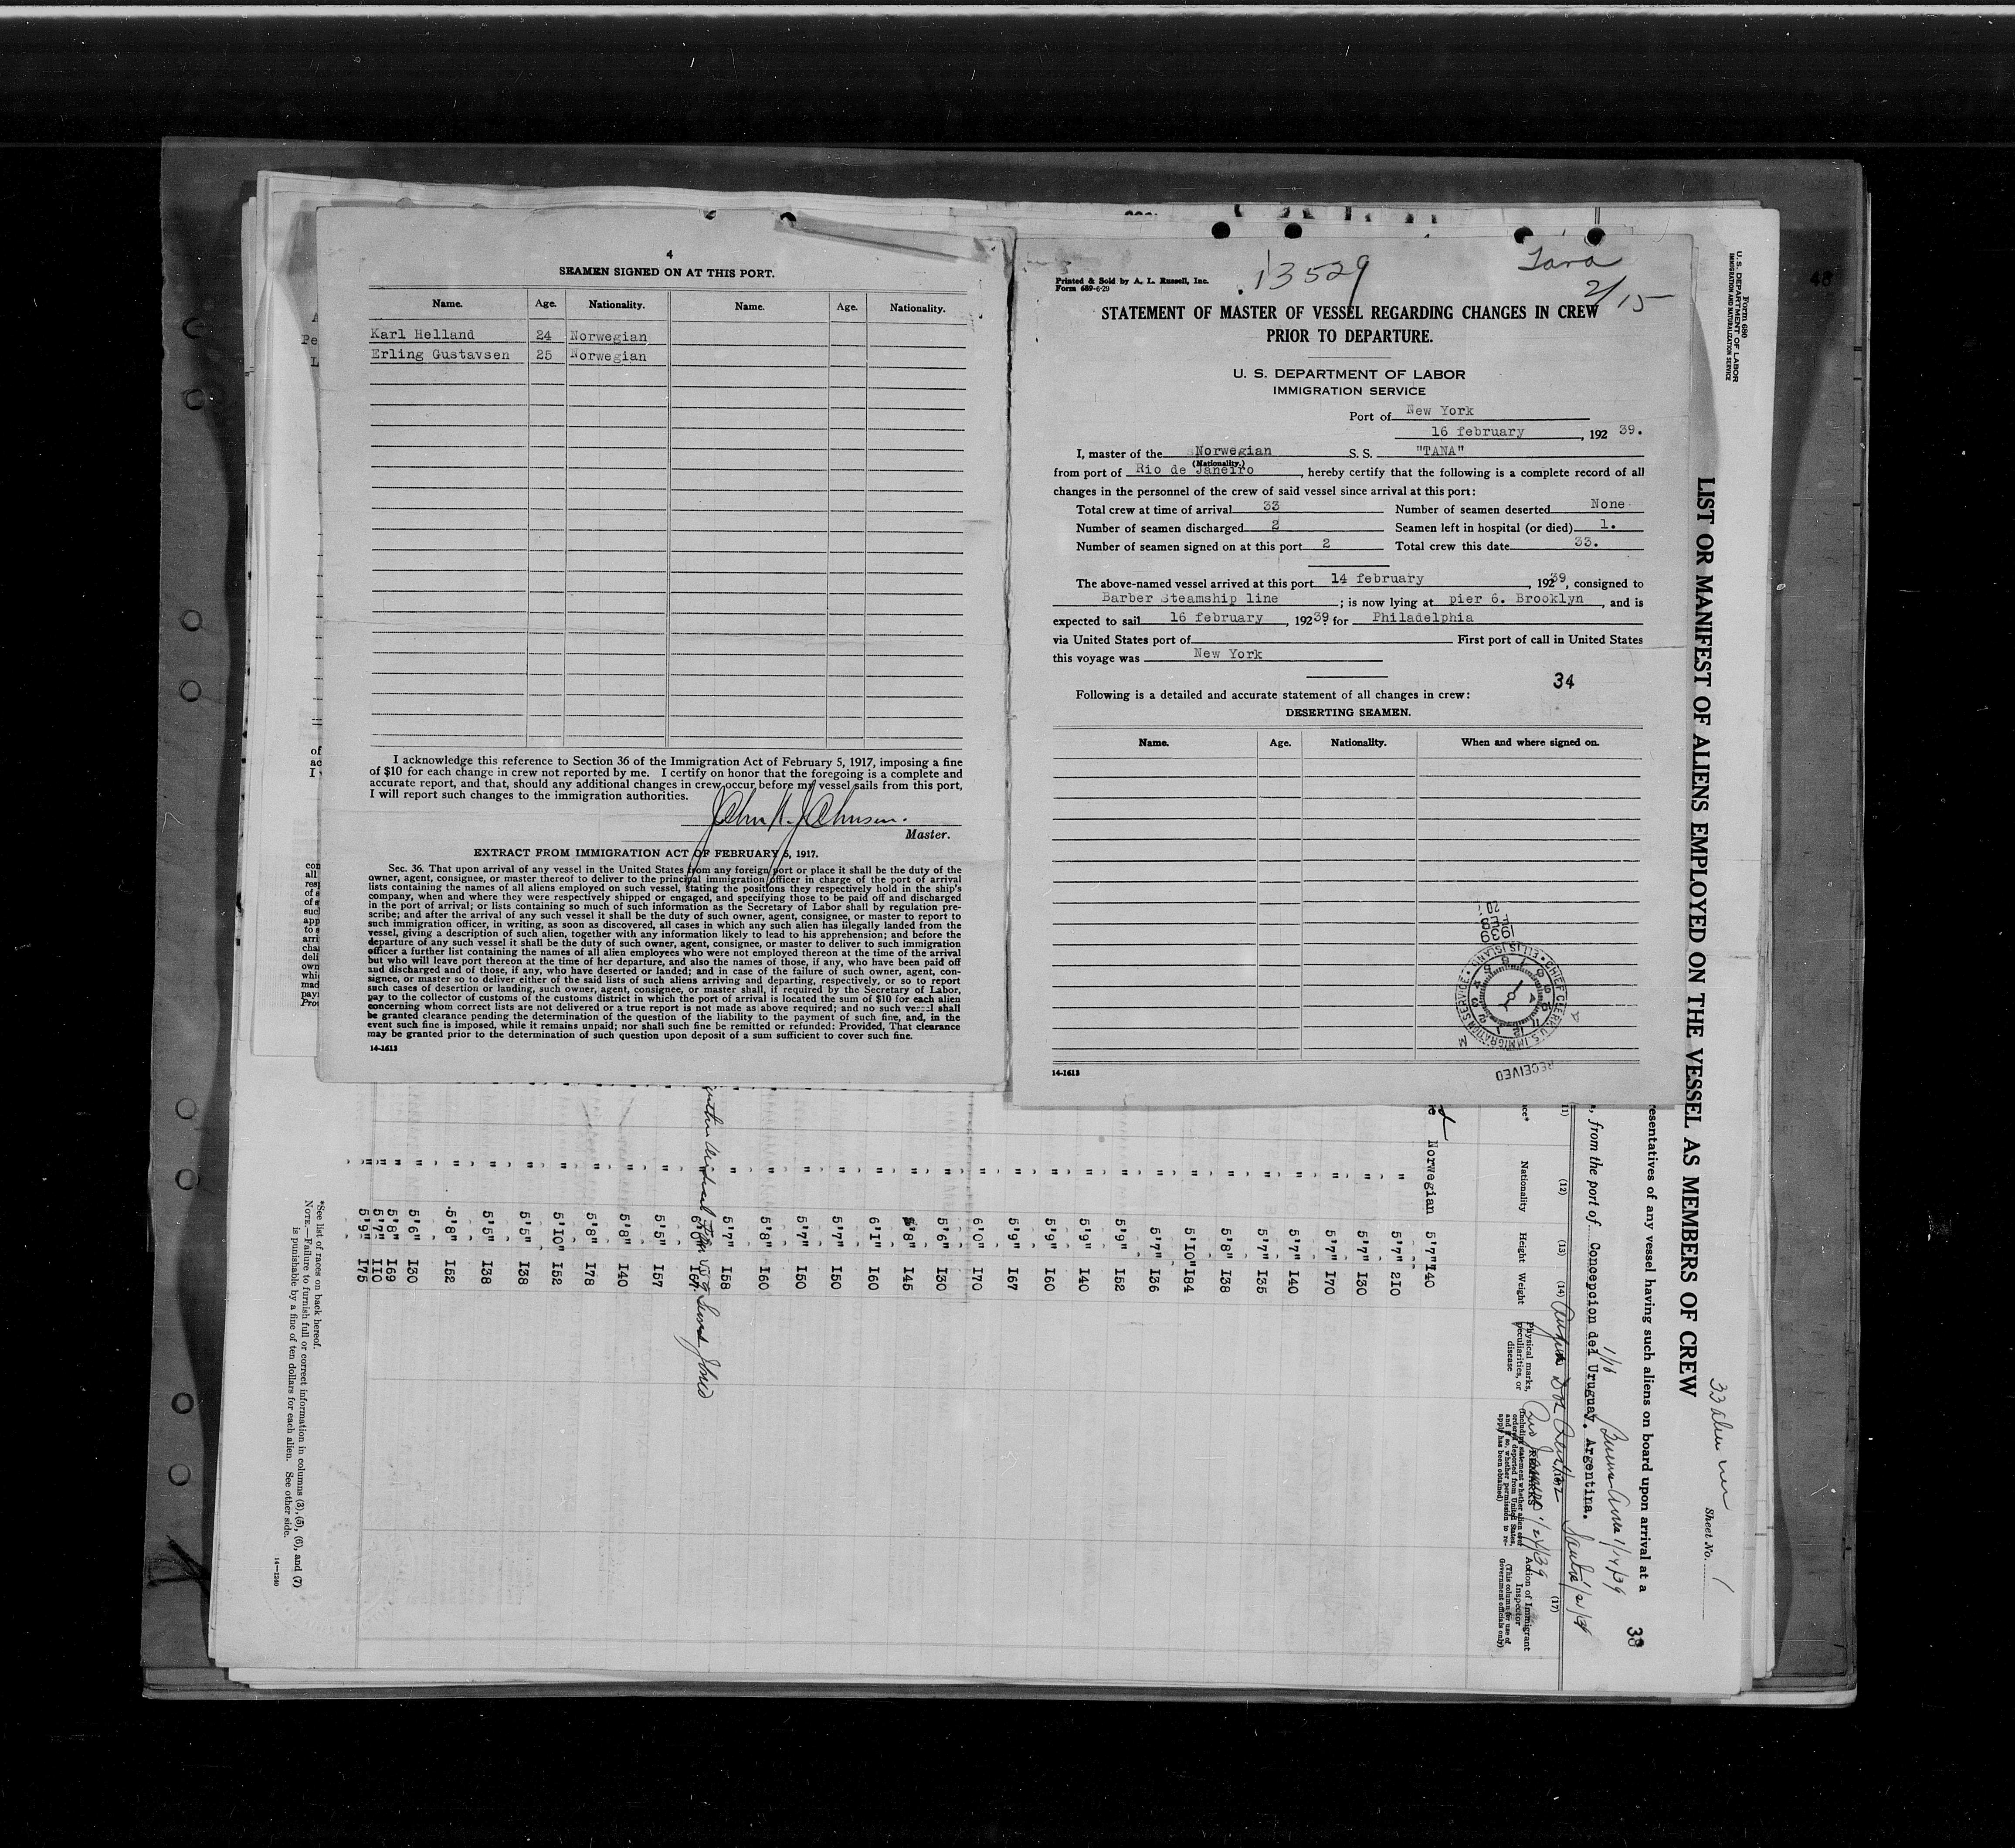 4
SEAMEN SIGNED ON AT THIS PORT.
Name. Age. Nationality. Name. Age. Nationality.
Karl Helland 24 Norwegian
Erling Gustavsen 25 Norwegian
I acknowledge this reference to Section 36 of the Immigration Act of February 5, 1917, imposing a fine
of $10 for each change in crew not reported by me. I certify on honor that the foregoing is a complete and
accurate report, and that, should any additional changes in crew occur before my vessel sails from this port,
I will report such changes to the immigration authorities.
Master.
EXTRACT FROM IMMIGRATION ACT OF FEBRUARY 5, 1917.
Sec. 36. That upon arrival of any vessel in the United States from any foreign port or place it shall be the duty of the
owner, agent, consignee, or master thereof to deliver to the principal immigration officer in charge of the port of arrival
lists containing the names of all aliens employed on such vessel, stating the positions they respectively hold in the ship's
company, when and where they were respectively shipped or engaged, and specifying those to be paid off and discharged
in the port of arrival; or lists containing so much of such information as the Secretary of Labor shall by regulation pre-
scribe; and after the arrival of any such vessel it shall be the duty of such owner, agent, consignee, or master to report to
such immigration officer, in writing, as soon as discovered, all cases in which any such alien has illegally landed from the
vessel, giving a description of such alien, together with any information likely to lead to his apprehension; and before the
departure of any such vessel it shall be the duty of such owner, agent, consignee, or master to deliver to such immigration
officer a further list containing the names of all alien employees who were not employed thereon at the time of the arrival
but who will leave port thereon at the time of her departure, and also the names of those, if any, who have been paid off
and discharged and of those, if any, who have deserted or landed; and in case of the failure of such owner, agent, con-
signee, or master so to deliver either of the said lists of such aliens arriving and departing, respectively, or so to report
such cases of desertion or landing, such owner, agent, consignee, or master shall, if required by the Secretary of Labor,
pay to the collector of customs of the customs district in which the port of arrival is located the sum of $10 for each alien
concerning whom correct lists are not delivered or a true report is not made as above required; and no such vessel shall
be granted clearance pending the determination of the question of the liability to the payment of such fine, and, in the
event such fine is imposed, while it remains unpaid; nor shall such fine be remitted or refunded: Provided, That clearance
may be granted prior to the determination of such question upon deposit of a sum sufficient to cover such fine.
14-1613
Printed & Sold by A. L. Russell, Inc.
Form 689-6-29
13529
Tana
2/15
STATEMENT OF MASTER OF VESSEL REGARDING CHANGES IN CREW
PRIOR TO DEPARTURE.
U. S. DEPARTMENT OF LABOR
IMMIGRATION SERVICE
Port of New York
16 february, 192 39.
I, master of the Norwegian S. S. "TANA"
(Nationality.)
from port of Rio de Janeiro, hereby certify that the following is a complete record of all
changes in the personnel of the crew of said vessel since arrival at this port:
Total crew at time of arrival 33 Number of seamen deserted None
Number of seamen discharged 2 Seamen left in hospital (or died) 1.
Number of seamen signed on at this port 2 Total crew this date 33.
The above-named vessel arrived at this port 14 february, 192 39, consigned to
Barber Steamship line; is now lying at pier 6. Brooklyn, and is
expected to sail 16 february, 192 39. for Philadelphia
via United States port of First port of call in United States
this voyage was New York
34
Following is a detailed and accurate statement of all changes in crew:
DESERTING SEAMEN.
Name. Age. Nationality. When and where signed on.
1939
CHIEF CLERK U.S. IMMIGRATION SERVICE ELLIS ISLAND
RECEIVED
14-1613
48
Form 680
U. S. DEPARTMENT OF LABOR
IMMIGRATION AND NATURALIZATION SERVICE
LIST OR MANIFEST OF ALIENS EMPLOYED ON THE VESSEL AS MEMBERS OF CREW
Sheet No. 1
resentatives of any vessel having such aliens on board upon arrival at a
38
, from the port of Concepcion del Uruguay. Argentina.
(12) (13) (14) (17)
Nationality Height Weight Physical marks, peculiarities, or disease
REMARKS
(Including statement whether alien ever ordered deported from United States, and if so, whether permission to reapply has been obtained)
Action of Immigrant Inspector
(This column for use of Government officials only)
Norwegian 5'7" 140
" 5'7" 210
" 5'7" 130
" 5'7" 170
" 5'7" 140
" 5'7" 135
" 5'8" 138
" 5'10" 184
" 5'7" 136
" 5'9" 152
" 5'9" 140
" 5'9" 160
" 5'9" 167
" 6'0" 170
" 5'6" 130
" 5'8" 145
" 6'1" 160
" 5'7" 150
" 5'7" 150
" 5'8" 160
" 5'7" 158
" 5'5" 157
" 5'8" 140
" 5'8" 178
" 5'10" 162
" 5'5" 138
" 5'5" 138
" 5'8" 152
" 5'6" 130
" 5'8" 169
" 5'7" 110
" 5'9" 175
*See list of races on back hereof.
NOTE.—Failure to furnish full or correct information in columns (3), (5), (6), and (7)
is punishable by a fine of ten dollars for each alien. See other side.
14—1240